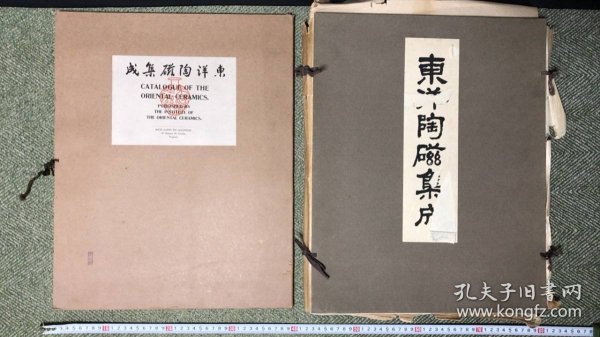 東洋陶磁集成
CATALOGUE OF THE
ORIENTAL CERAMICS.
PUBLISHED BY
THE INSTITUTE OF
THE ORIENTAL CERAMICS.
東洋陶磁集成
孔夫子旧书网
www.kongfz.com